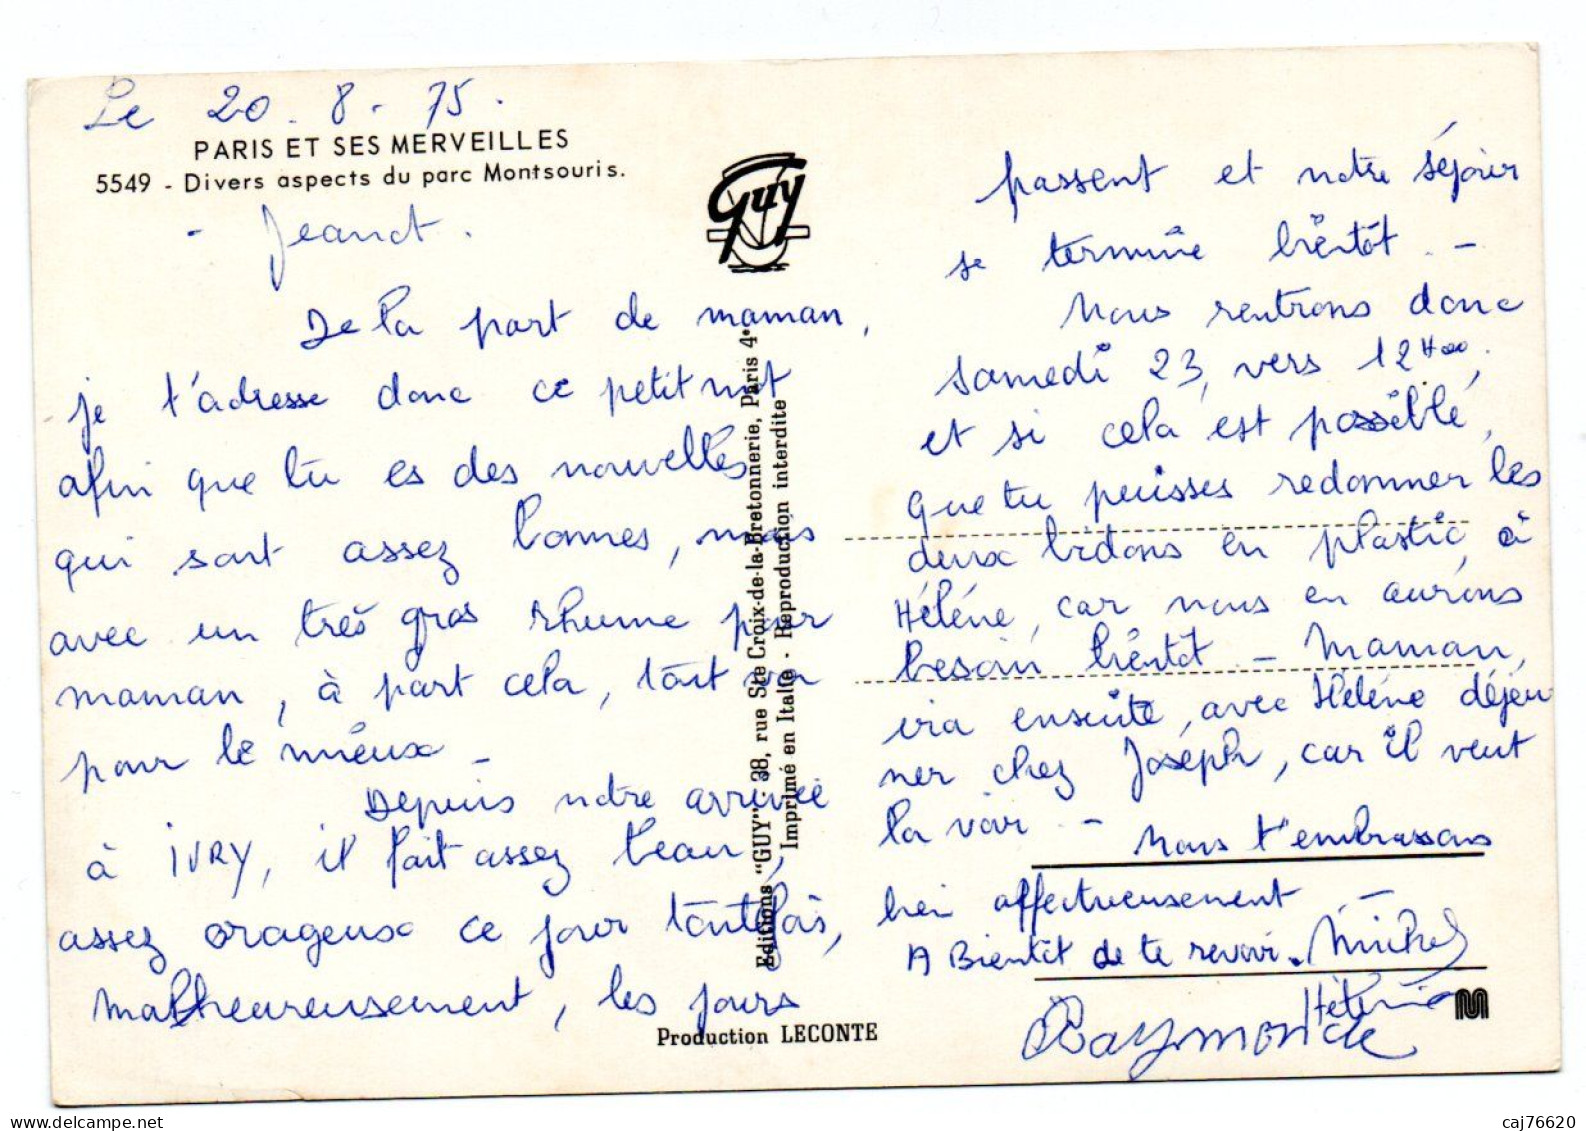 Le 20. 8. 75.
PARIS ET SES MERVEILLES
5549 - Divers aspects du parc Montsouris.
- Jeanot.
De la part de maman,
je t'adresse donc ce petit mot
afin que tu es des nouvelles
qui sont assez bonnes, mais
avec un très gros rhume pour
maman, à part cela, tout va
pour le mieux -
Depuis notre arrivée
à IVRY, il fait assez beau,
assez orageux ce jour toutefois,
malheureusement, les jours
Guy
Editions "GUY" - 38, rue Ste Croix-de-la-Bretonnerie, Paris 4e
Imprimé en Italie - Reproduction interdite
Production LECONTE
passent et notre séjour
se termine bientôt. -
Nous rentrons donc
samedi 23, vers 12H00,
et si cela est possible,
que tu puisses redonner les
deux bidons en plastic, à
Hélène, car nous en aurons
besoin bientôt - Maman,
ira ensuite, avec Hélène déjeu
ner chez Joseph, car il veut
la voir. - Nous t'embrassons
bien affectueusement. -
A Bientôt de te revoir. Michel
Hélène
Raymonde
M
caj76620